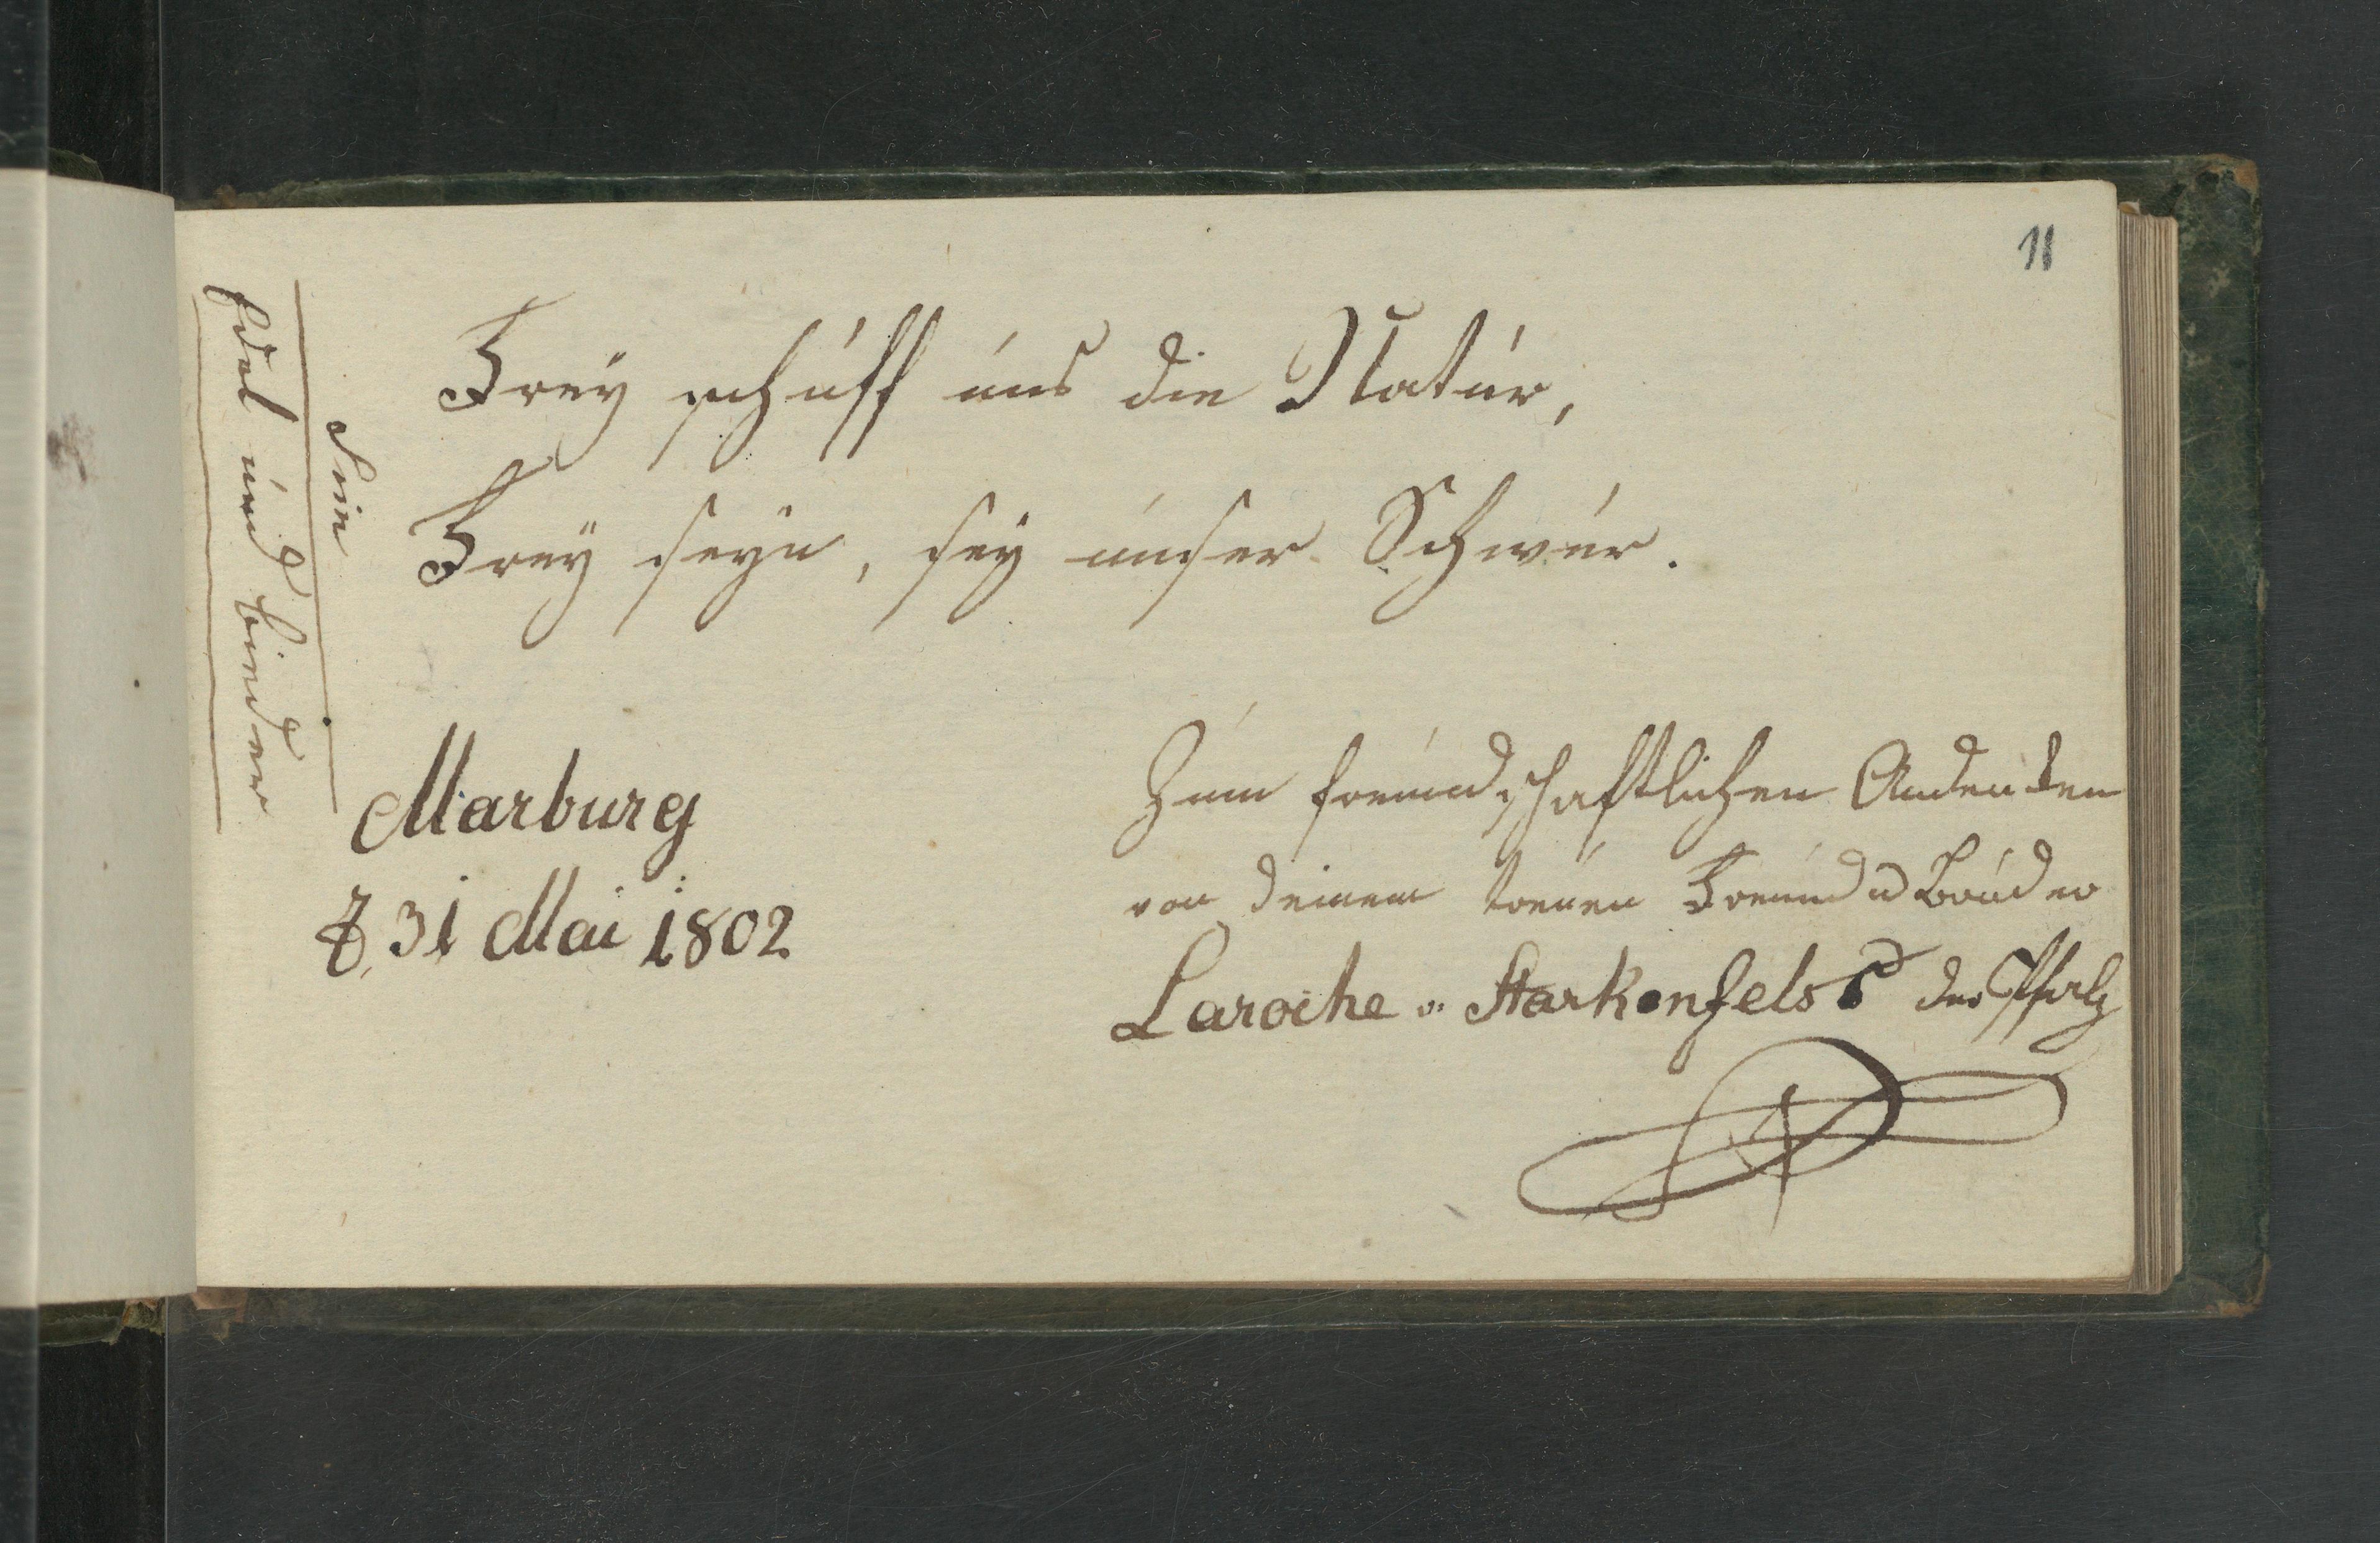 11
Frey schuff uns die Natur,
Frey seyn, sey unser Schwur.
Sein
Edel und bieder
Marburg
31 Mai 1802
Zum freundschaftlichen Andenken
von deinem treuen Freund u Bruder
Laroche v. Starkenfels der Pfalz